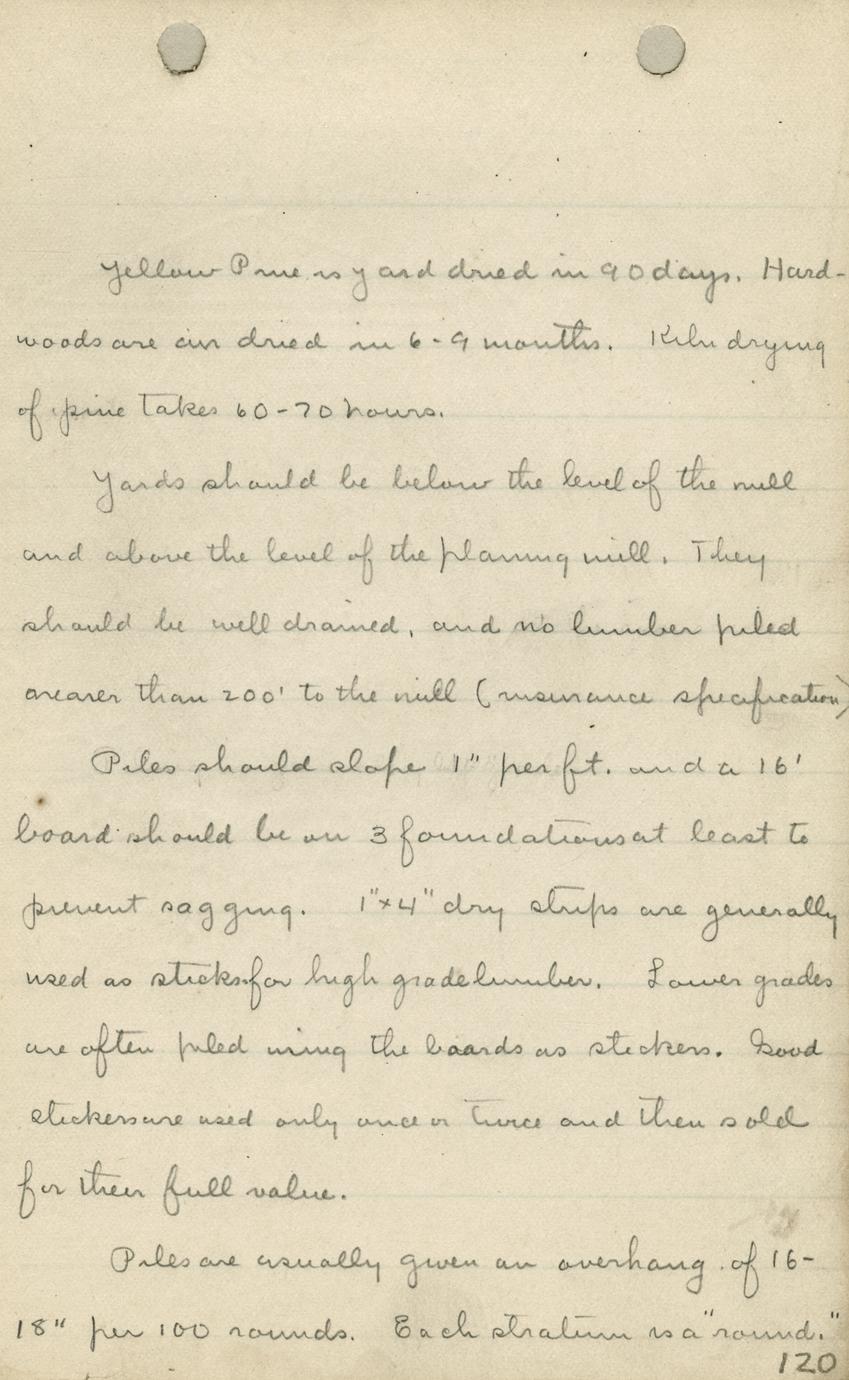 Yellow Pine is yard dried in 90 days. Hard-
woods are air dried in 6-9 months. Kiln drying
of pine takes 60-70 hours.
Yards should be below the level of the mill
and above the level of the planing mill. They
should be well drained, and no lumber piled
nearer than 200' to the mill (insurance specification)
Piles should slope 1" per ft. and a 16'
board should be on 3 foundations at least to
prevent sagging. 1"x4" dry strips are generally
used as sticks for high grade lumber. Lower grades
are often piled using the boards as stickers. Good
stickers are used only once or twice and then sold
for their full value.
Piles are usually given an overhang of 16-
18" per 100 rounds. Each stratum is a "round."
120